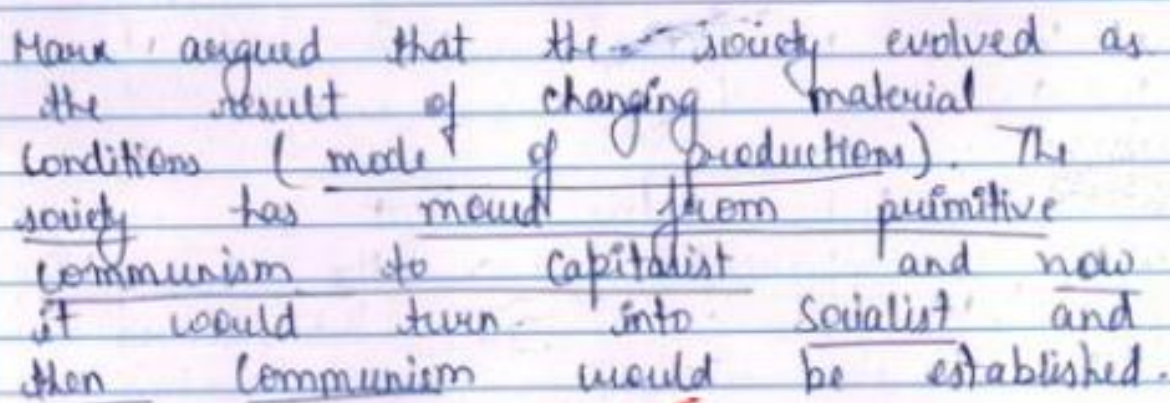 Marx argued that the society evolved as
the result of changing material
Conditions (mode of productions). The
society has moved from primitive
communism to capitalist and now
it would turn into Socialist and
then Communism would be established.